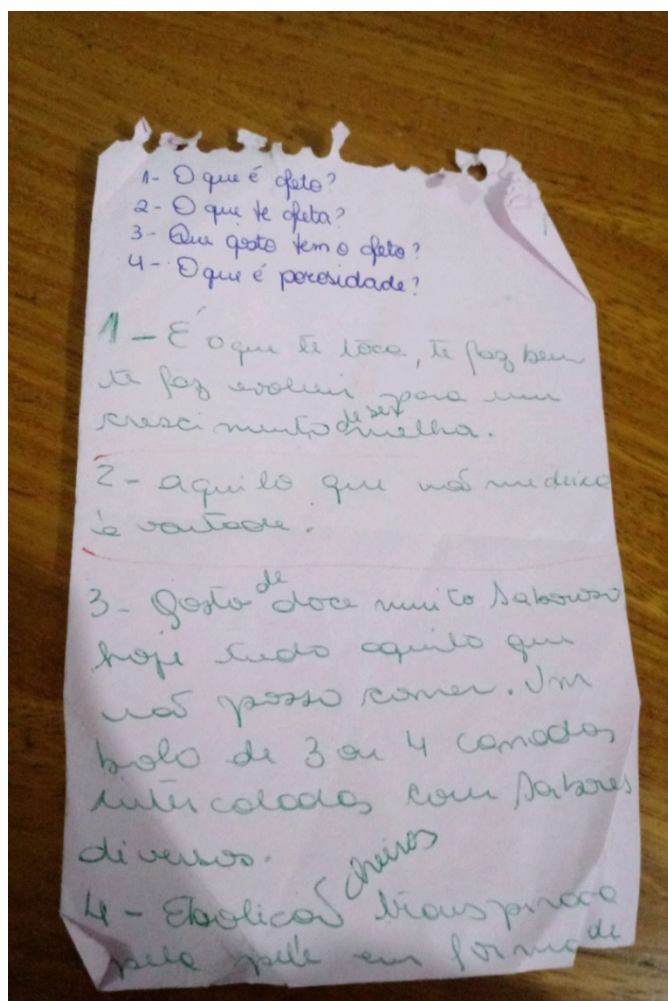 1- O que é afeto?
2- O que te afeta?
3- Que gosto tem o afeto?
4- O que é porosidade?
1- É o que te toca, te faz bem
te faz evoluir para um
crescimento de ser melhor.
2- aquilo que não me deixa
à vontade.
3- Gosto de doce muito saboroso
hoje tudo aquilo que
não posso comer. Um
bolo de 3 ou 4 camadas
intercaladas com sabores
diversos.
4- Ebolição cheiros transpiração
pela pele em forma de